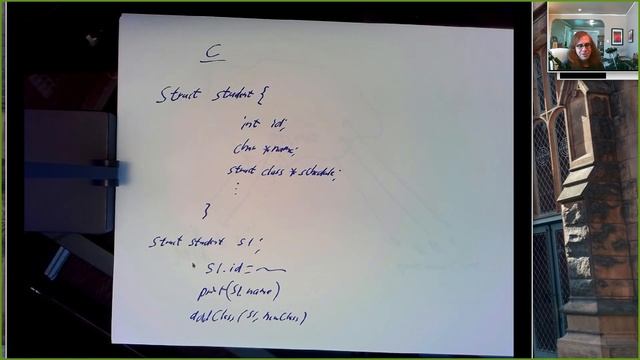 C
Struct student {
int id;
char *name;
struct class *schedule;
:
}
Struct student s1;
s1.id = ~
print(s1.name)
addClass(s1, newClass)